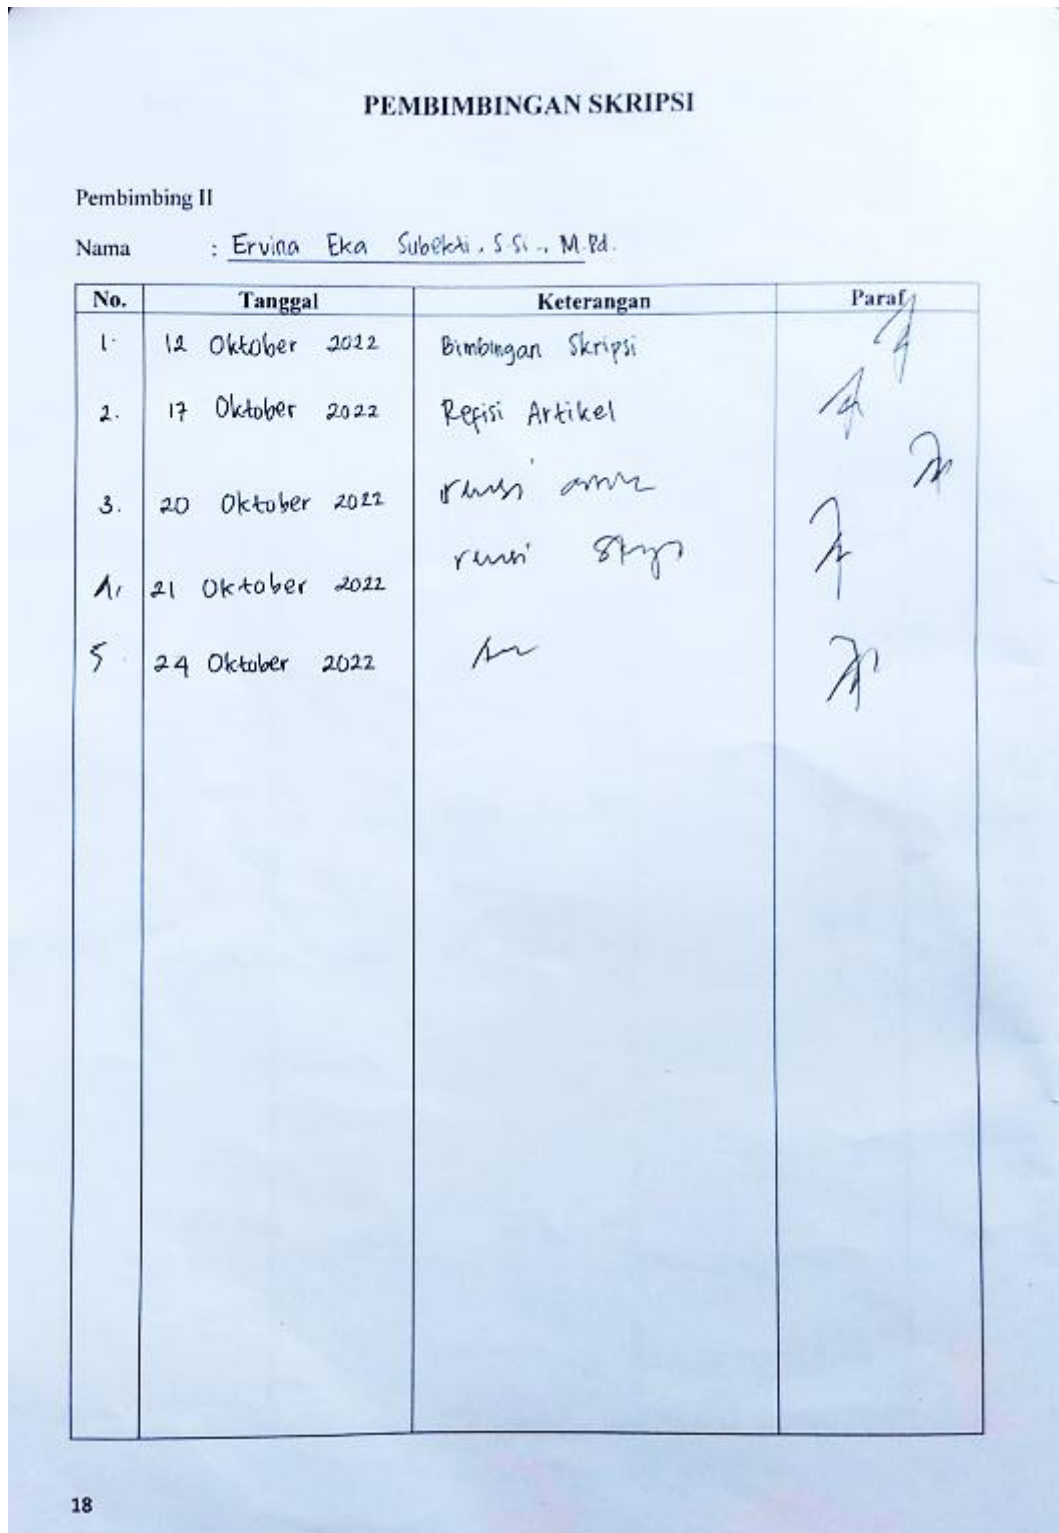 PEMBIMBINGAN SKRIPSI
Pembimbing II
Nama : Ervina Eka Subekti, S.Si., M.Pd.
No. Tanggal Keterangan Paraf
1. 12 Oktober 2022 Bimbingan Skripsi
2. 17 Oktober 2022 Refisi Artikel
3. 20 Oktober 2022 revisi
21 Oktober 2022 revisi
5. 24 Oktober 2022
18